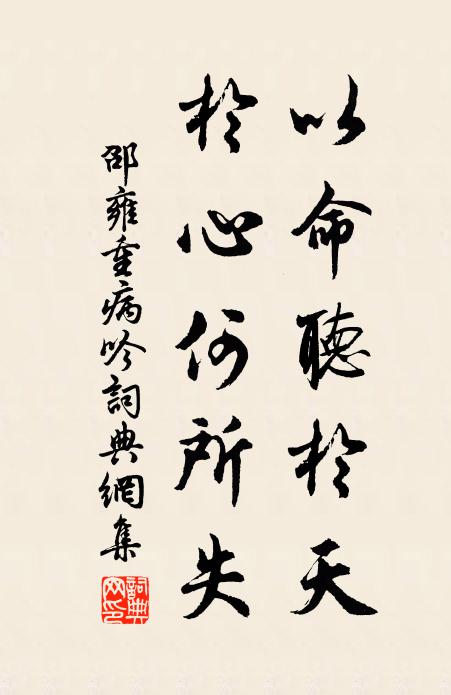 以命聽於天
於心何所失
邵雍重病吟詞典網集
詞典網印